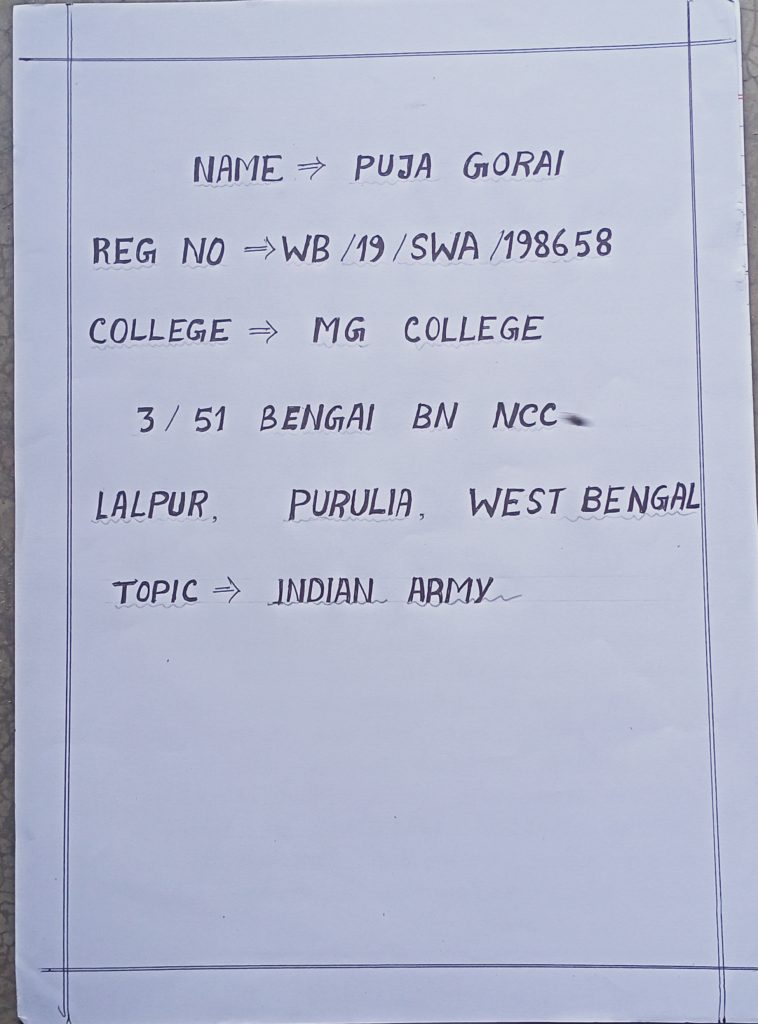 NAME ⇒ PUJA GORAI
REG NO ⇒ WB/19/SWA/198658
COLLEGE ⇒ MG COLLEGE
3/51 BENGAI BN NCC
LALPUR, PURULIA, WEST BENGAL
TOPIC ⇒ INDIAN ARMY